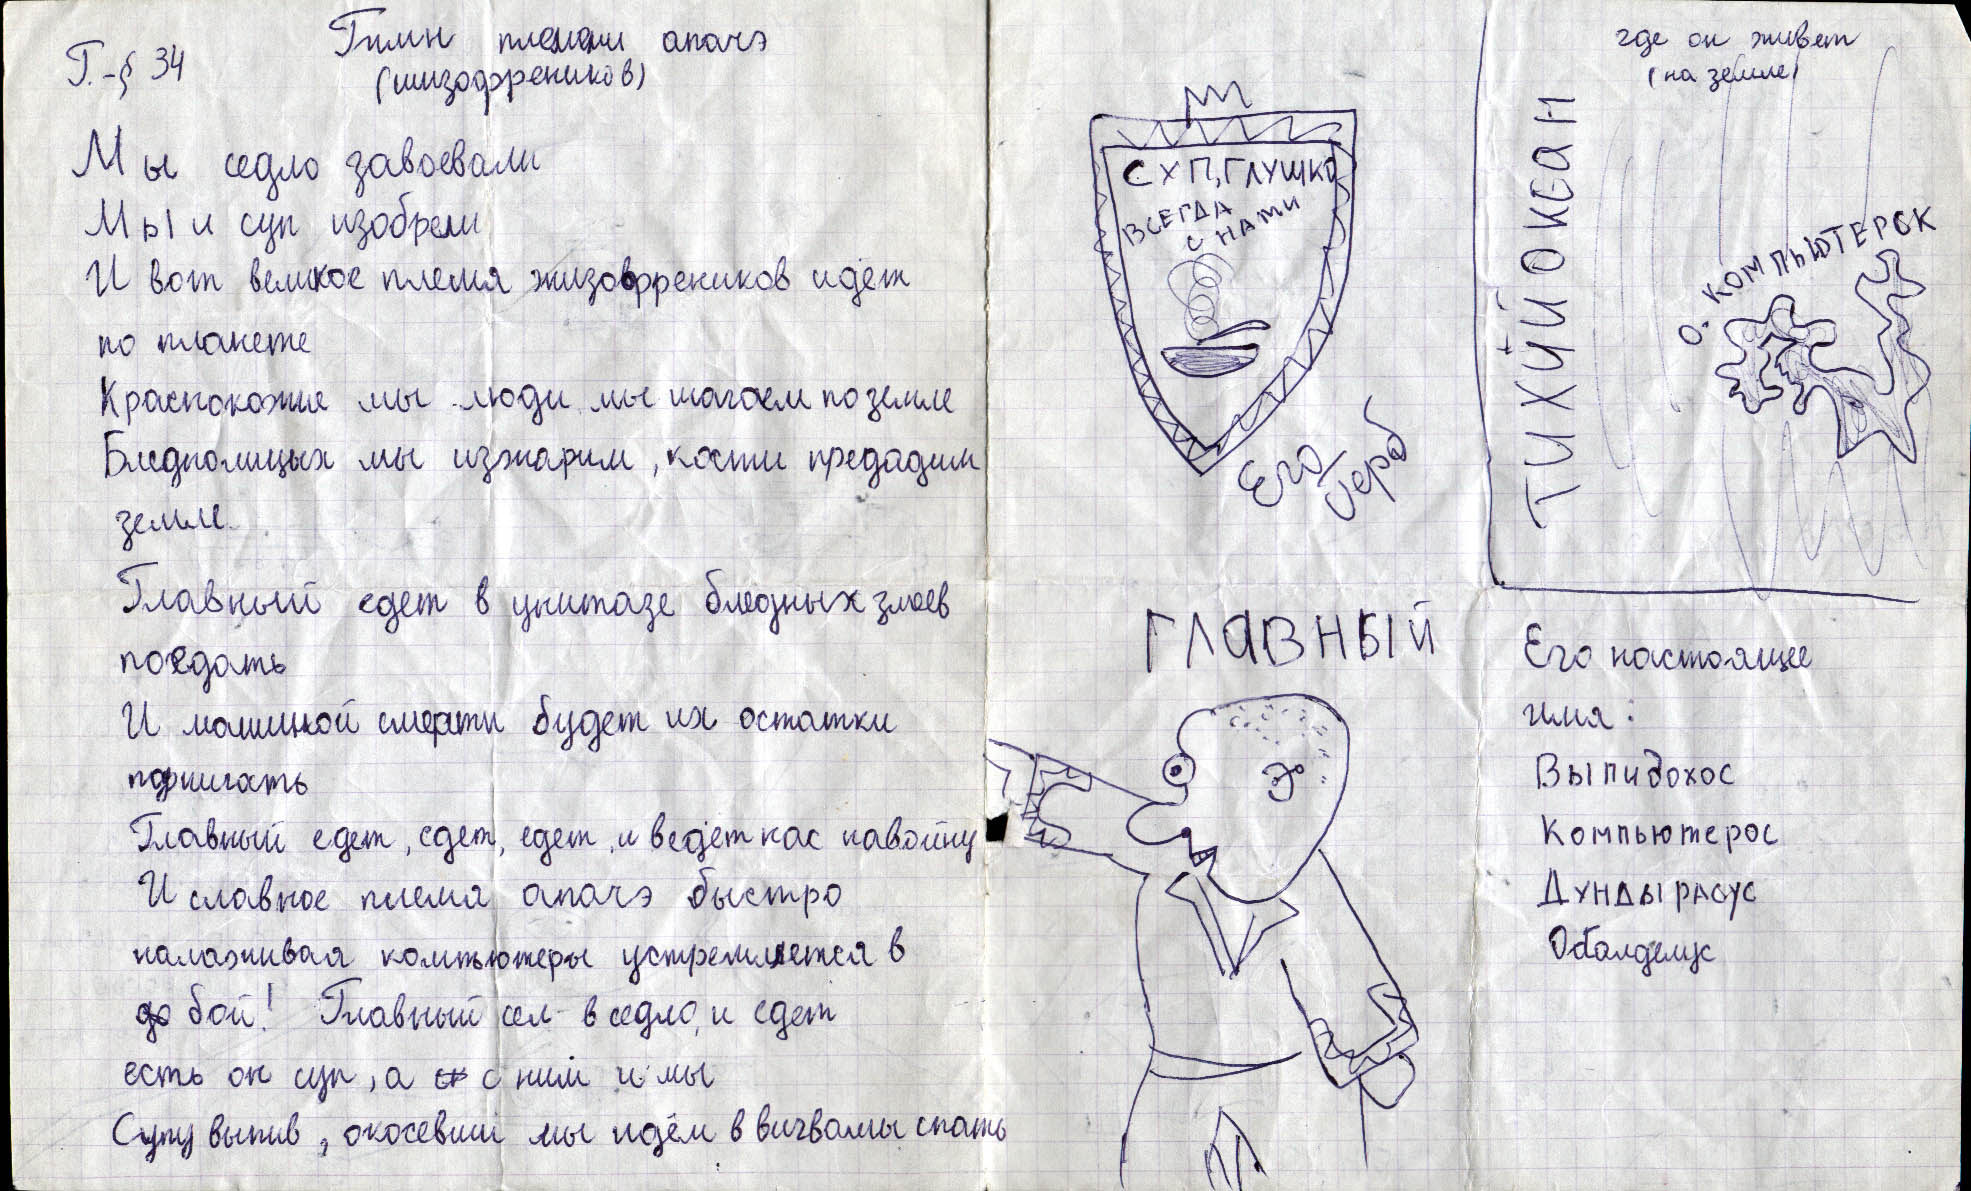 Г.-§ 34
Гимн племени апачэ
(шизофреников)
Мы седло завоевали
Мы и суп изобрели
И вот великое племя жизофреников идет
по планете
Краснокожие мы люди мы шагаем по земле
Бледнолицых мы изжарим, кости предадим
земле.
Главный едет в унитазе бледных змеев
поедать
И машинкой смерти будет их остатки
поджигать
Главный едет, едет, едет, и ведет нас на войну
И славное племя апачэ быстро
налаживая компьютеры устремляется в
бой! Главный сел в седло, и едет
есть он суп, а с ним и мы
Супу выпив, окосевши мы идём в вигвамы спать
СУП, ГЛУШКО
ВСЕГДА
С НАМИ
Его
герб
ГЛАВНЫЙ
где он живет
(на земле)
ТИХИЙ ОКЕАН
О. КОМПЬЮТЕРОК
Его настоящее
имя:
Выпидохос
Компьютерос
Дундырасус
Обалделус